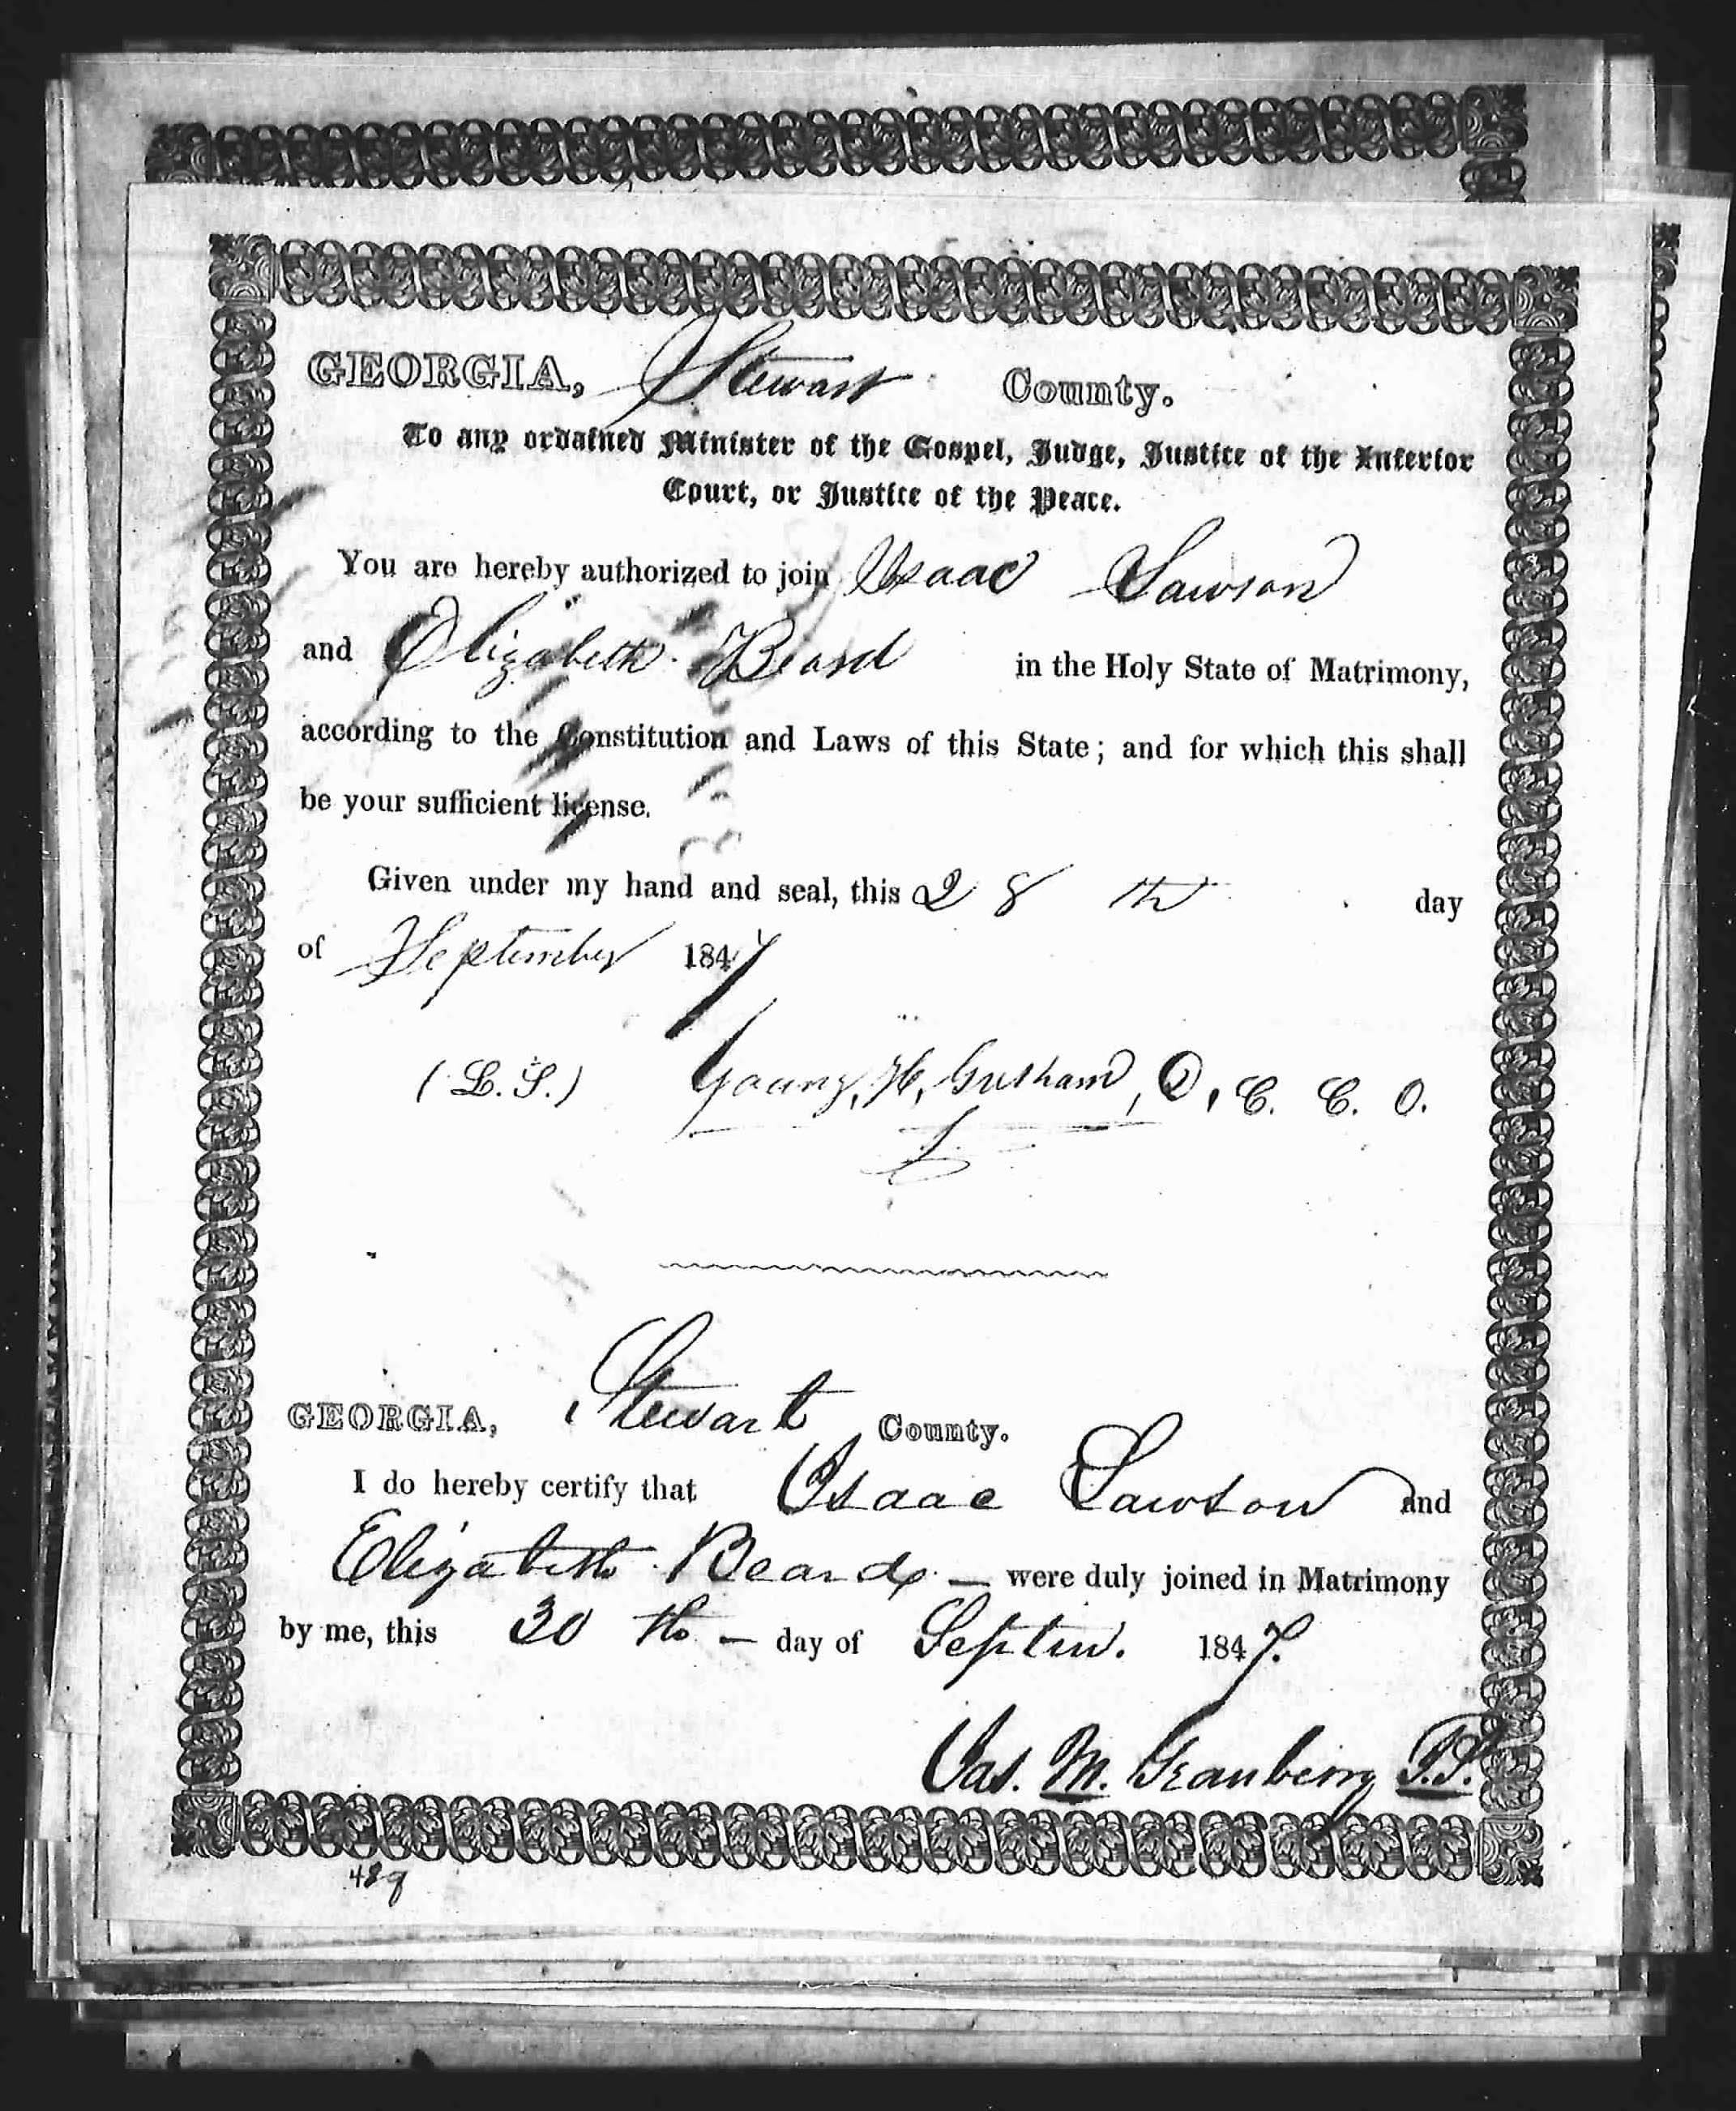 GEORGIA, Stewart County.
To any ordained Minister of the Gospel, Judge, Justice of the Inferior
Court, or Justice of the Peace.
You are hereby authorized to join Isaac Lawson
and Elizabeth Beard in the Holy State of Matrimony,
according to the Constitution and Laws of this State; and for which this shall
be your sufficient license.
Given under my hand and seal, this 28th day
of September 1847
(L.S.) Young. H. Gresham, D. C. C. O.
GEORGIA, Stewart County.
I do hereby certify that Isaac Lawson and
Elizabeth Beard — were duly joined in Matrimony
by me, this 30th — day of Septem. 1847.
Jas. M. Granberry J.P.
489